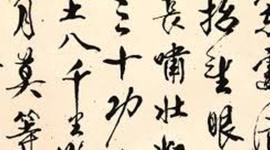 抬望眼
長嘯壯
三十功
土八千里
月莫等